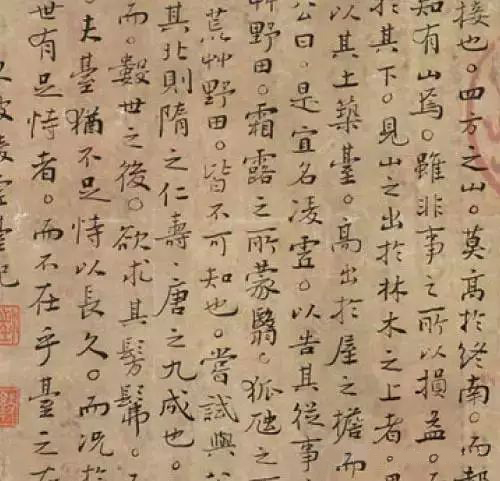 接也。四方之山。莫高於终南。而都
知有山焉。雖非事之所以損益。
於其下。見山之出於林木之上者。
以其土築臺。高出於屋之檐而
公曰。是宜名凌虗。以告其從事
艸野田。霜露之所蒙翳。狐虺之
荒艸野田。皆不可知也。嘗試與
其北則隋之仁壽、唐之九成也。
而。數世之後。欲求其髣髴。
。夫臺猶不足恃以長久。而況於
世有足恃者。而不在乎臺之存
凌虗臺記